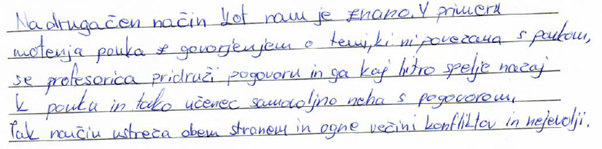 Na drugačen način kot nam je znano. V primeru
motenja pouka z govorjenjem o temi, ki ni povezana s poukom,
se profesorica pridruži pogovoru in ga kaj hitro spelje nazaj
k pouku in tako učenec samovoljno neha s pogovorom.
Tak naučin ustreza obem stranem in ogne večini konfliktov in nejevolji.